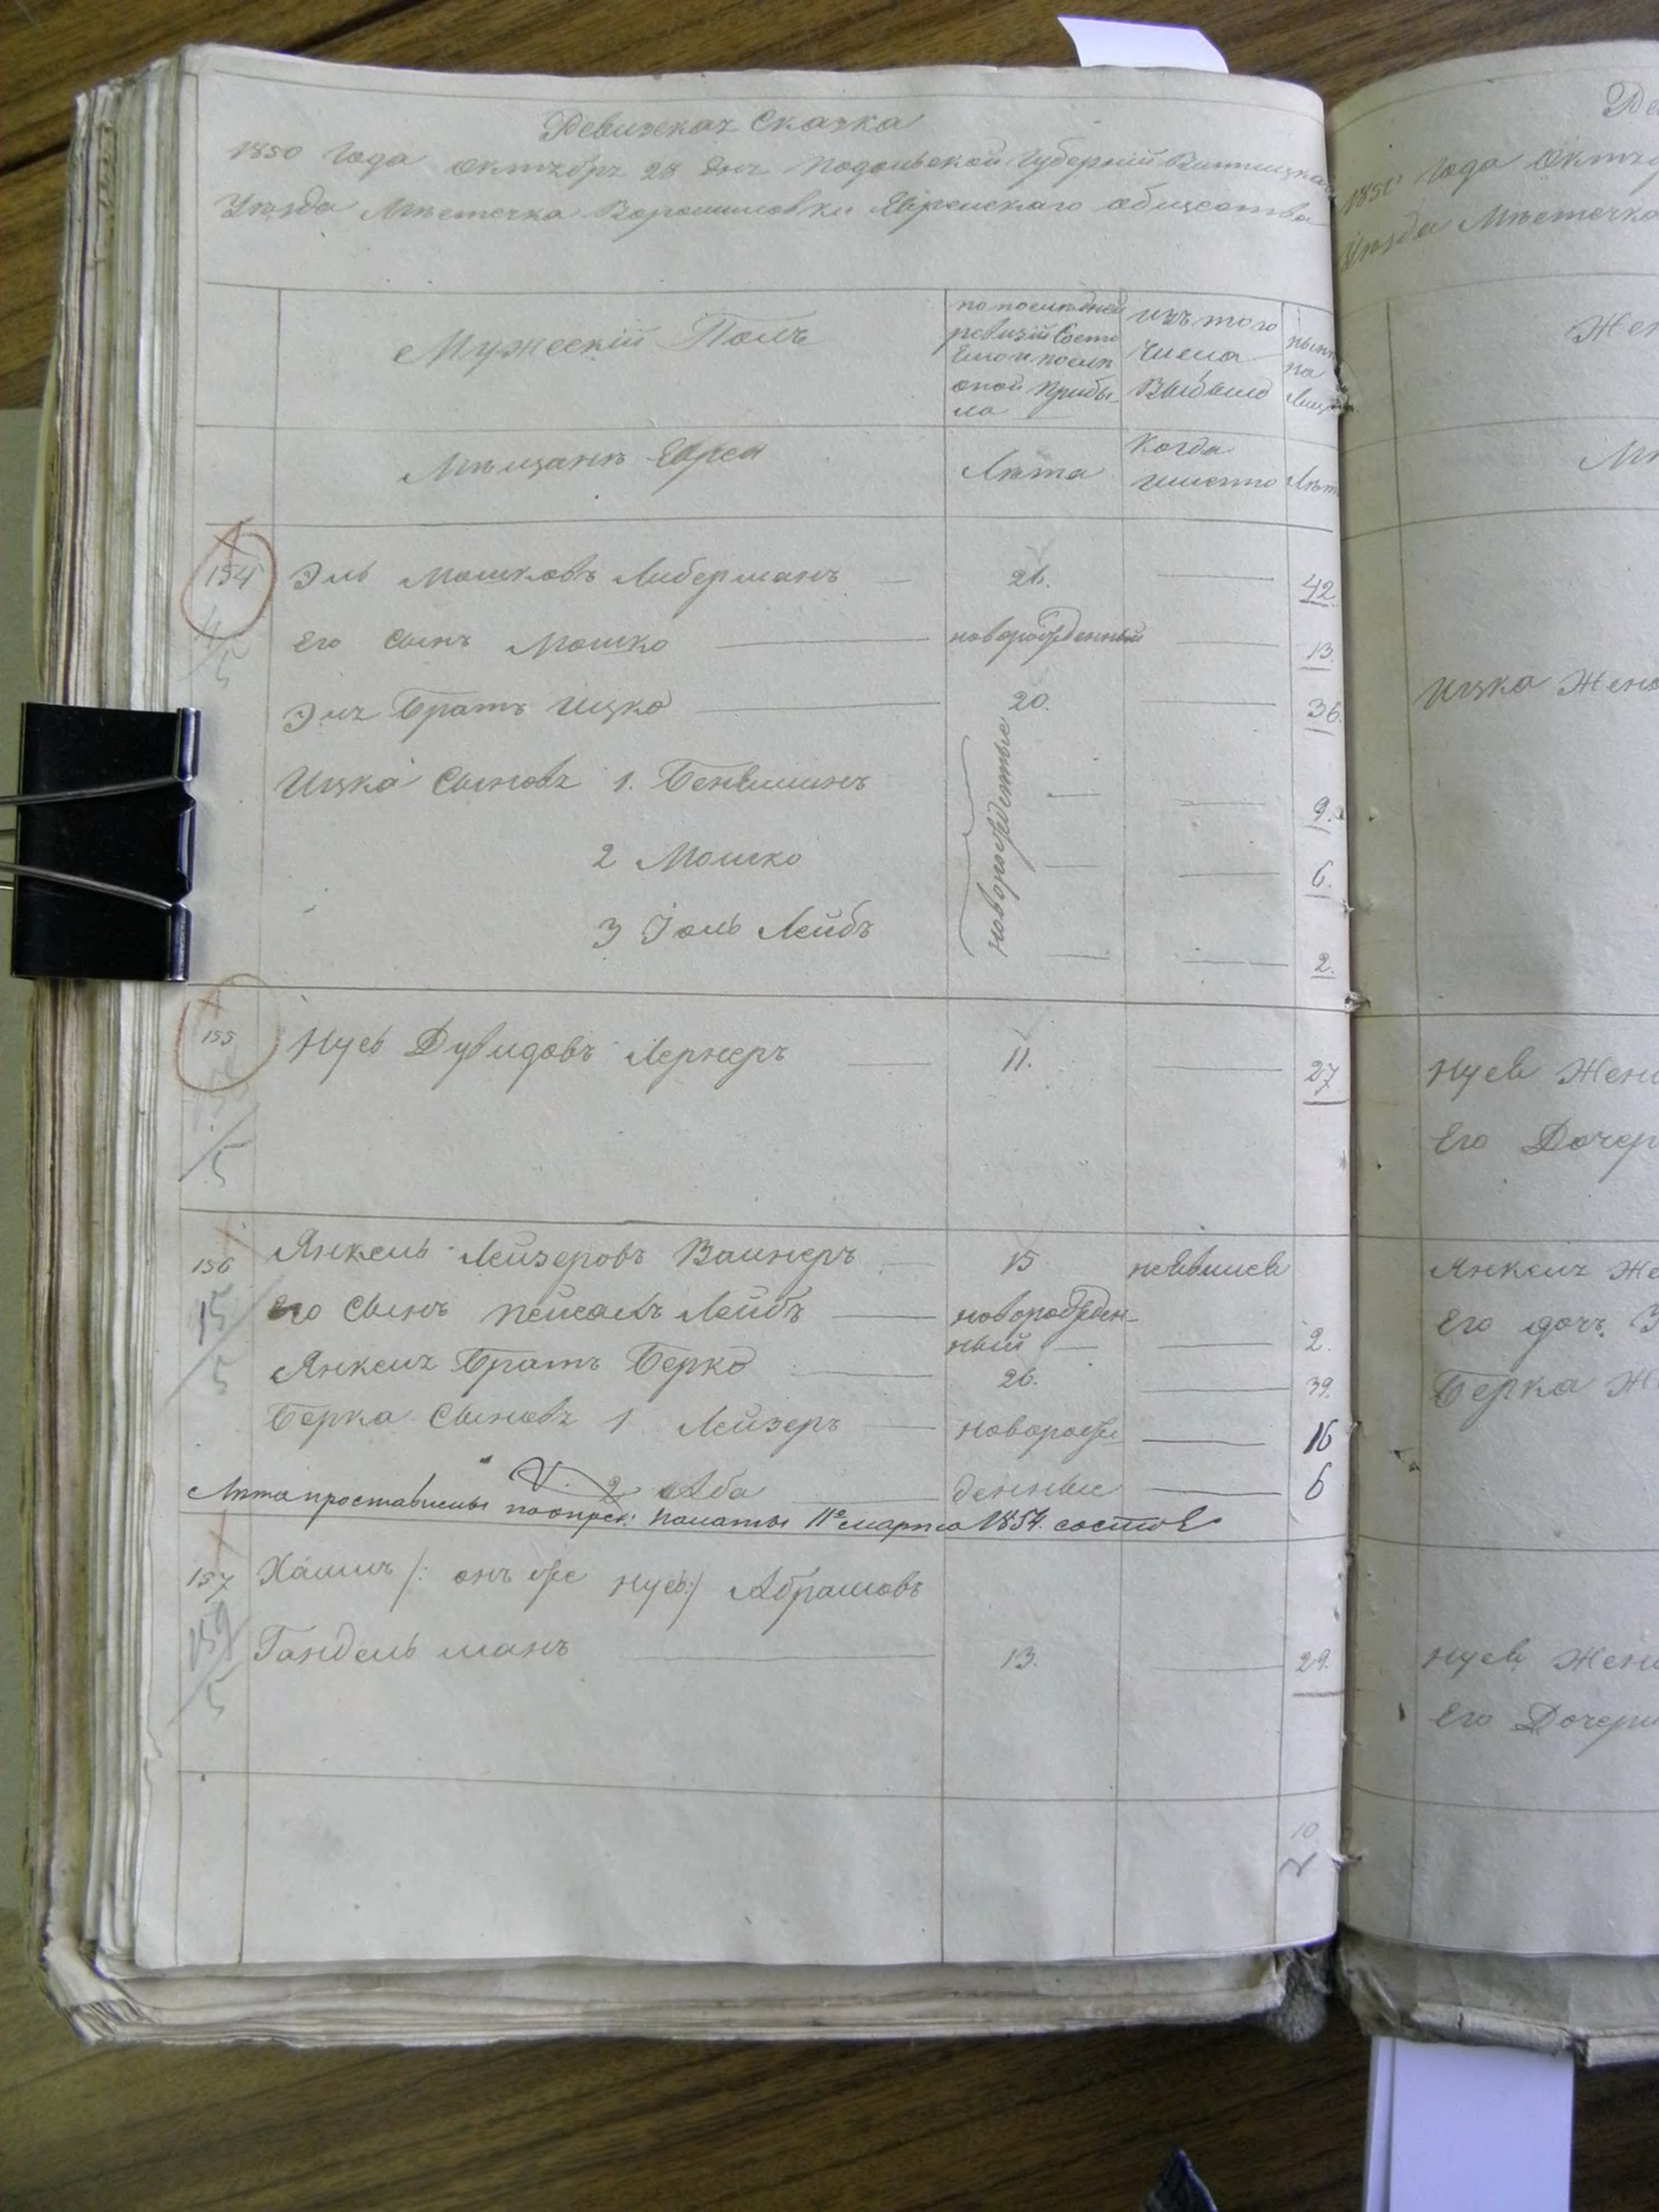 Ревизская Сказка
1850 года октября 28 дня Подольской Губерніи Винницкаго
Уѣзда Мѣстечка Ворошиловки Еврейскаго общества
Мужескій Полъ
по послѣдней ревизіи состояло и послѣ оной прибыло
изъ того числа выбыло
нынѣ на лицо
Мѣщанъ Евреи
Лѣта
Когда именно
Лѣта
154 Эль Мошковъ Либерманъ 26. 42
4/5 Его сынъ Мошко новорожденный 13.
Эля братъ Ицко 20. 36.
Ицка сыновья 1. Беньяминъ новорожденные 9.
2 Мошко 6.
3 Іоль Лейбъ 2.
155 Нусь Дувидовъ Лернеръ 11. 27
5
156 Янкель Лейзеровъ Вайнеръ 15 неявился
15 Его сынъ Пейсахъ Лейбъ новорожденный 2.
5 Янкеля братъ Берко 26. 39.
Берка сыновья 1 Лейзеръ новорож 16
2 Аба денные 6
Лѣта проставлены по опред: палаты 11е марта 1854. состоя
157 Хаимъ /: онъ же Нусь :/ Абрамовъ
159 Гандельманъ 13. 29.
5
10
1850 года Октя
Уѣзда Мѣстечка
Же
Ицка Жена
Нуся Жена
Его Дочер
Янкеля Же
Его дочь
Берка Ж
Нуся Жена
Его Дочери